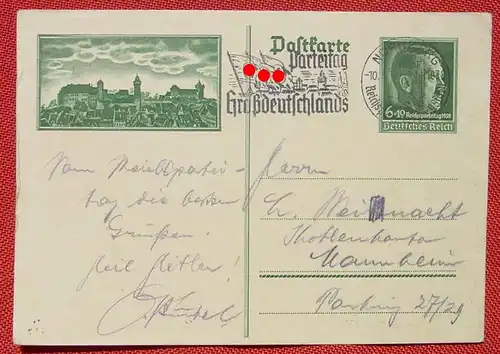 Postkarte
Parteitag
Großdeutschlands
-10.
6+19 Reichsparteitag 1938
Deutsches Reich
Vom Reichspartei-
tag die besten
Grüßen.
Heil Hitler!
Herrn
H. Weihnacht
Mannheim
27/29